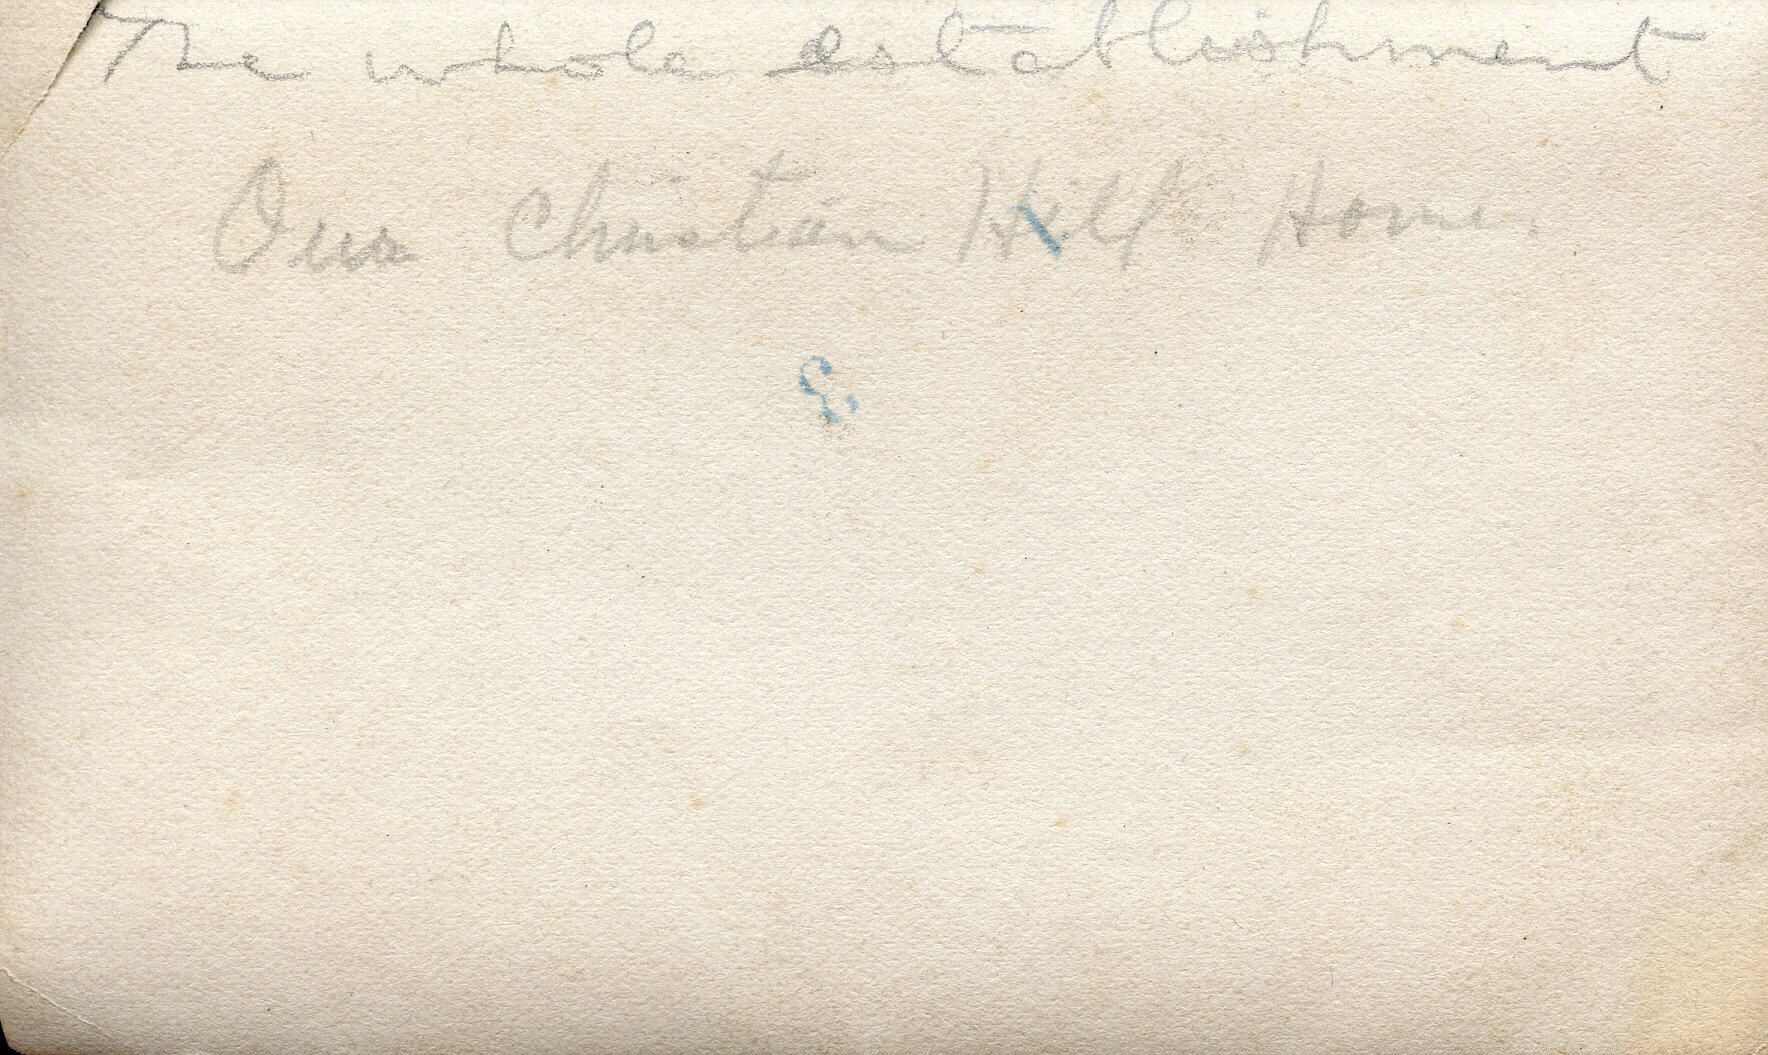 The whole establishment
Our Christian Hill Home.
3